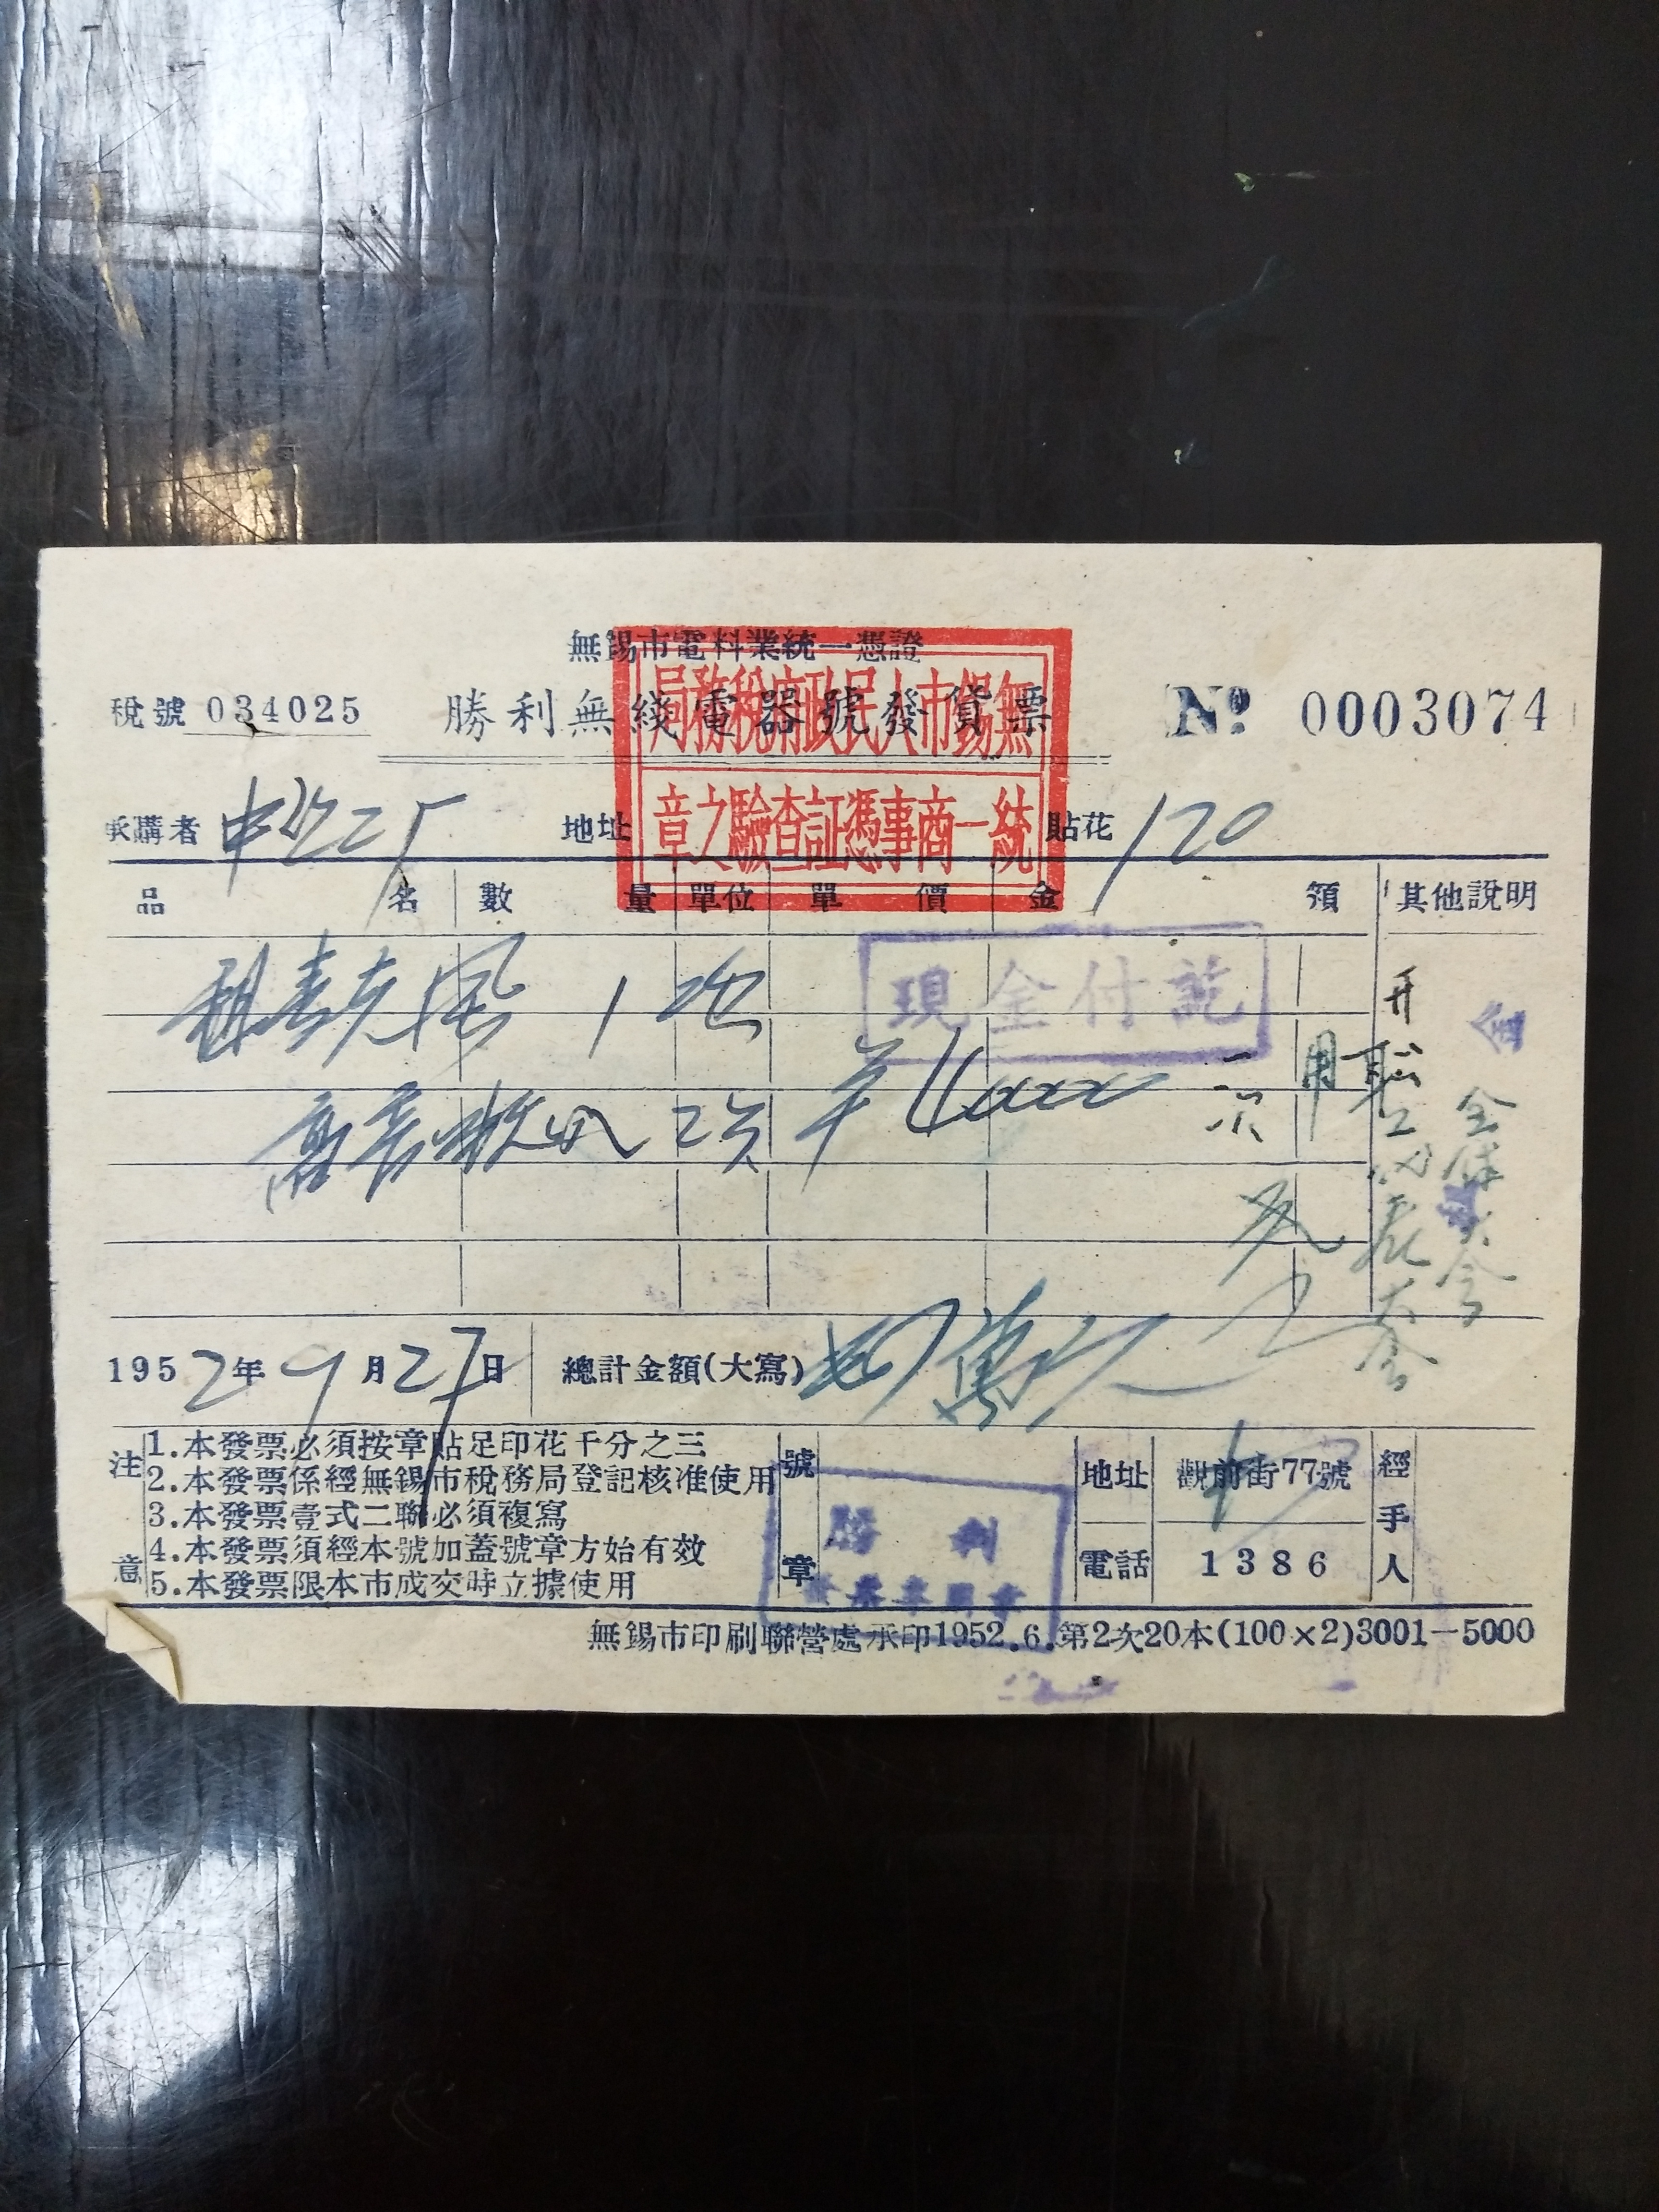 無錫市電料業統一憑證
稅號 034025 勝利無綫電器號發貨票 Nº 0003074
無錫市人民政府稅務局
統一商事憑証查驗之章
承購者 地址 貼花 120
品名 數量 單位 單價 金額 其他說明
現金付訖
租麦克風 1 次
2次 40000
1952年 9月27日 總計金額(大寫) 萬
注意
1.本發票必須按章貼足印花千分之三
2.本發票係經無錫市稅務局登記核准使用
3.本發票壹式二聯必須複寫
4.本發票須經本號加蓋號章方始有效
5.本發票限本市成交時立據使用
號章
勝利
地址 觀前街77號
電話 1386
經手人
無錫市印刷聯營處承印1952.6.第2次20本(100×2)3001—5000